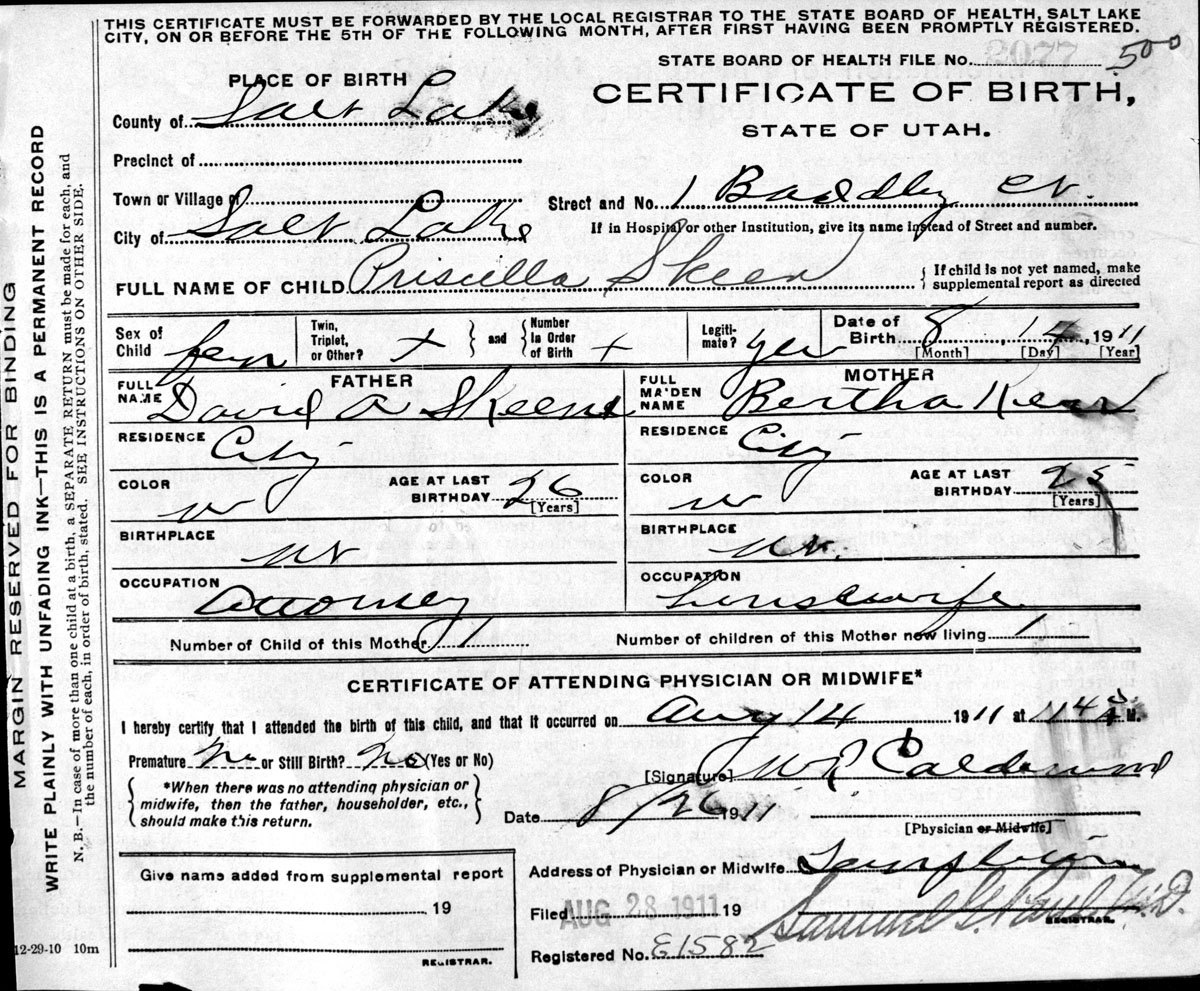 THIS CERTIFICATE MUST BE FORWARDED BY THE LOCAL REGISTRAR TO THE STATE BOARD OF HEALTH, SALT LAKE
CITY, ON OR BEFORE THE 5TH OF THE FOLLOWING MONTH, AFTER FIRST HAVING BEEN PROMPTLY REGISTERED.
STATE BOARD OF HEALTH FILE No. 2077 500
CERTIFICATE OF BIRTH,
STATE OF UTAH.
PLACE OF BIRTH
County of Salt Lake
Precinct of
Town or Village of
City of Salt Lake
Street and No. 1
If in Hospital or other Institution, give its name instead of Street and number.
FULL NAME OF CHILD Priscilla Skeen
{ If child is not yet named, make
supplemental report as directed
Sex of Child fem
Twin, Triplet, or Other? +
} and { Number in Order of Birth +
Legiti-mate? yes
Date of Birth 8, 14, 1911
[Month] [Day] [Year]
FATHER
FULL NAME David A Skeene
RESIDENCE City
COLOR W
AGE AT LAST BIRTHDAY 26
[Years]
BIRTHPLACE Ut
OCCUPATION Attorney
MOTHER
FULL MAIDEN NAME Bertha
RESIDENCE City
COLOR W
AGE AT LAST BIRTHDAY 25
[Years]
BIRTHPLACE Ut.
OCCUPATION housewife
Number of Child of this Mother 1
Number of children of this Mother now living 1
CERTIFICATE OF ATTENDING PHYSICIAN OR MIDWIFE*
I hereby certify that I attended the birth of this child, and that it occurred on Aug 14 1911 at M.
Premature No or Still Birth? No (Yes or No)
{ *When there was no attending physician or
midwife, then the father, householder, etc.,
should make this return. }
[Signature] WR Calderwood
Date 8/26 1911
[Physician or Midwife]
Address of Physician or Midwife
Give name added from supplemental report
19
REGISTRAR.
Filed AUG 28 1911 19
Samuel G. Paul M.D.
REGISTRAR.
Registered No. E1582
MARGIN RESERVED FOR BINDING
WRITE PLAINLY WITH UNFADING INK—THIS IS A PERMANENT RECORD
N. B.—In case of more than one child at a birth, a SEPARATE RETURN must be made for each, and
the number of each, in order of birth, stated. SEE INSTRUCTIONS ON OTHER SIDE.
12-29-10 10m